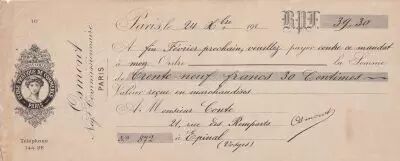 Paris, le 24 Xbre 191 B.P.F. 39,30
A fin Février prochain, veuillez payer contre ce mandat
à mon Ordre la Somme
de Trente neuf francs 30 Centimes
Valeur reçue en marchandises
A Monsieur Conte
21, rue des Remparts
No 872 à Epinal
(Vosges)
Osmont
Osmont
Négt Commissionnaire
PARIS
PARIS
Téléphone
144.28